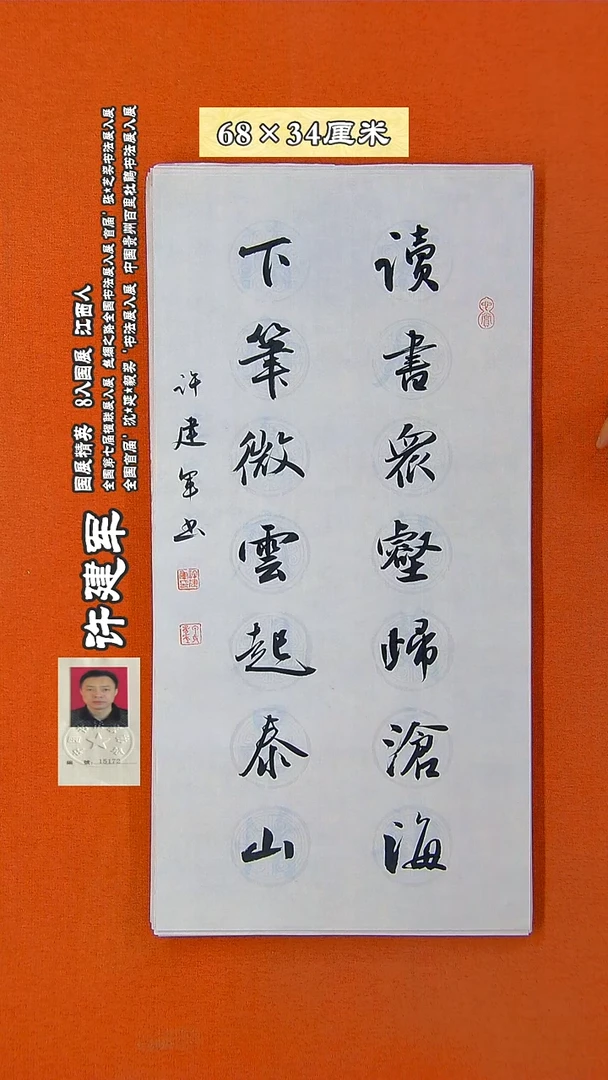 68×34厘米
读書衆壑歸滄海
下筆微雲起泰山
许建军书
许建军
国展精英 8入国展 江西人
全国第七届楹联展入展 丝绸之路全国书法展入展 首届'张★芝奖书法展入展
全国首届'沈★延★毅奖'书法展入展 中国贵州百里杜鹃书法展入展
编号:15172